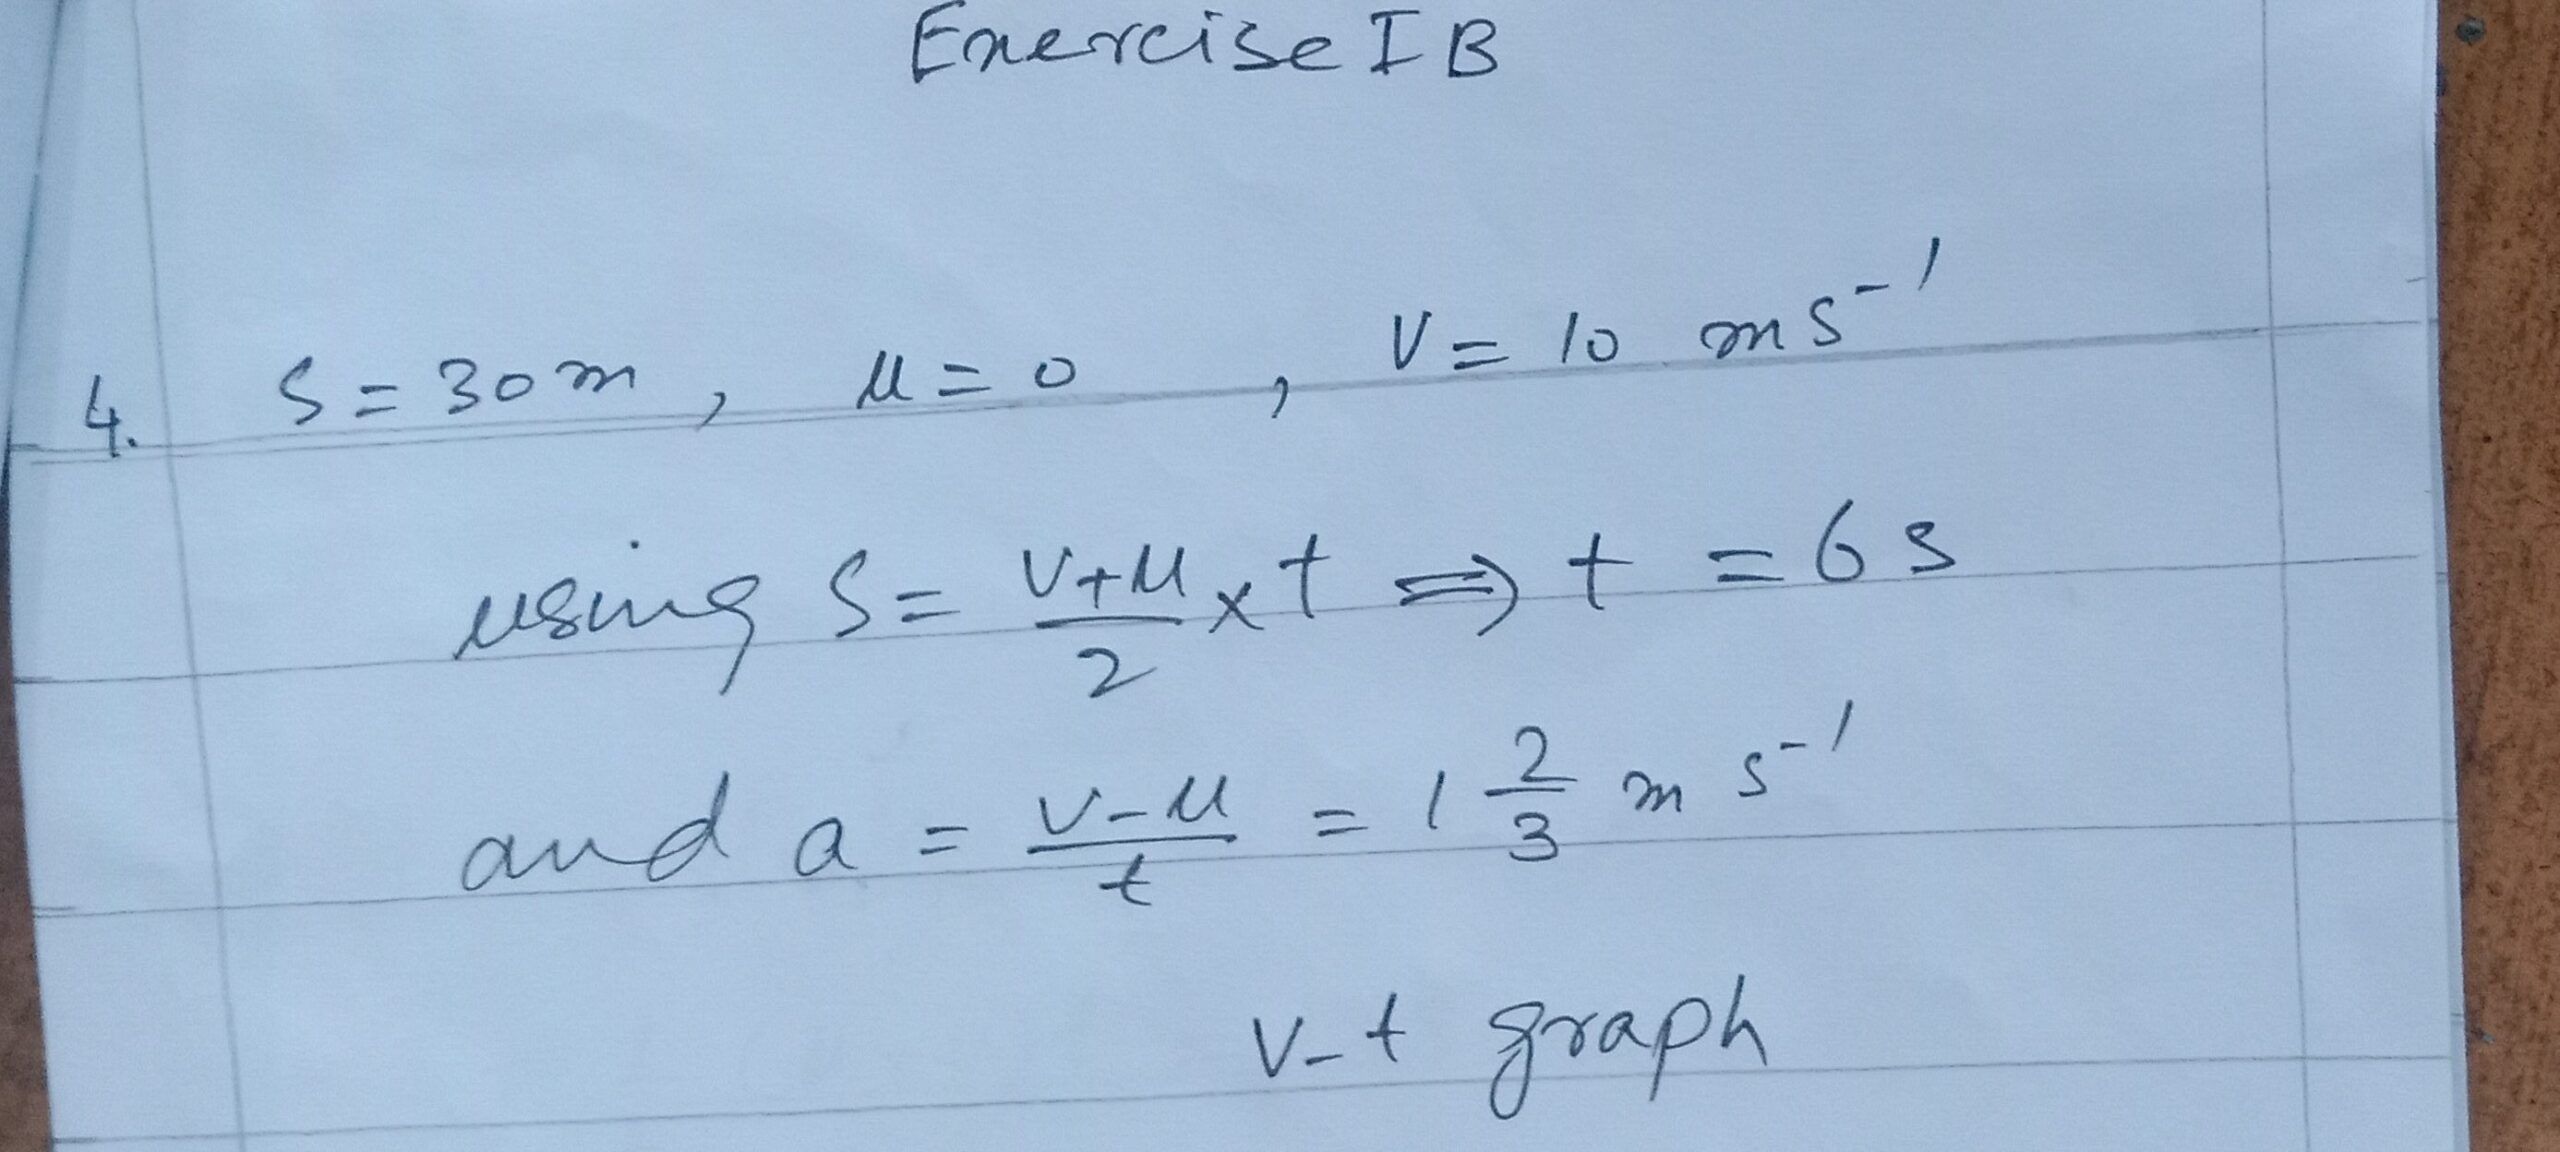 Exercise I B
4. S = 30 m , u = 0 , V = 10 m s⁻¹
using S = (V+u)/2 × t ⇒ t = 6 s
and a = (V-u)/t = 1 2/3 m s⁻¹
V-t graph